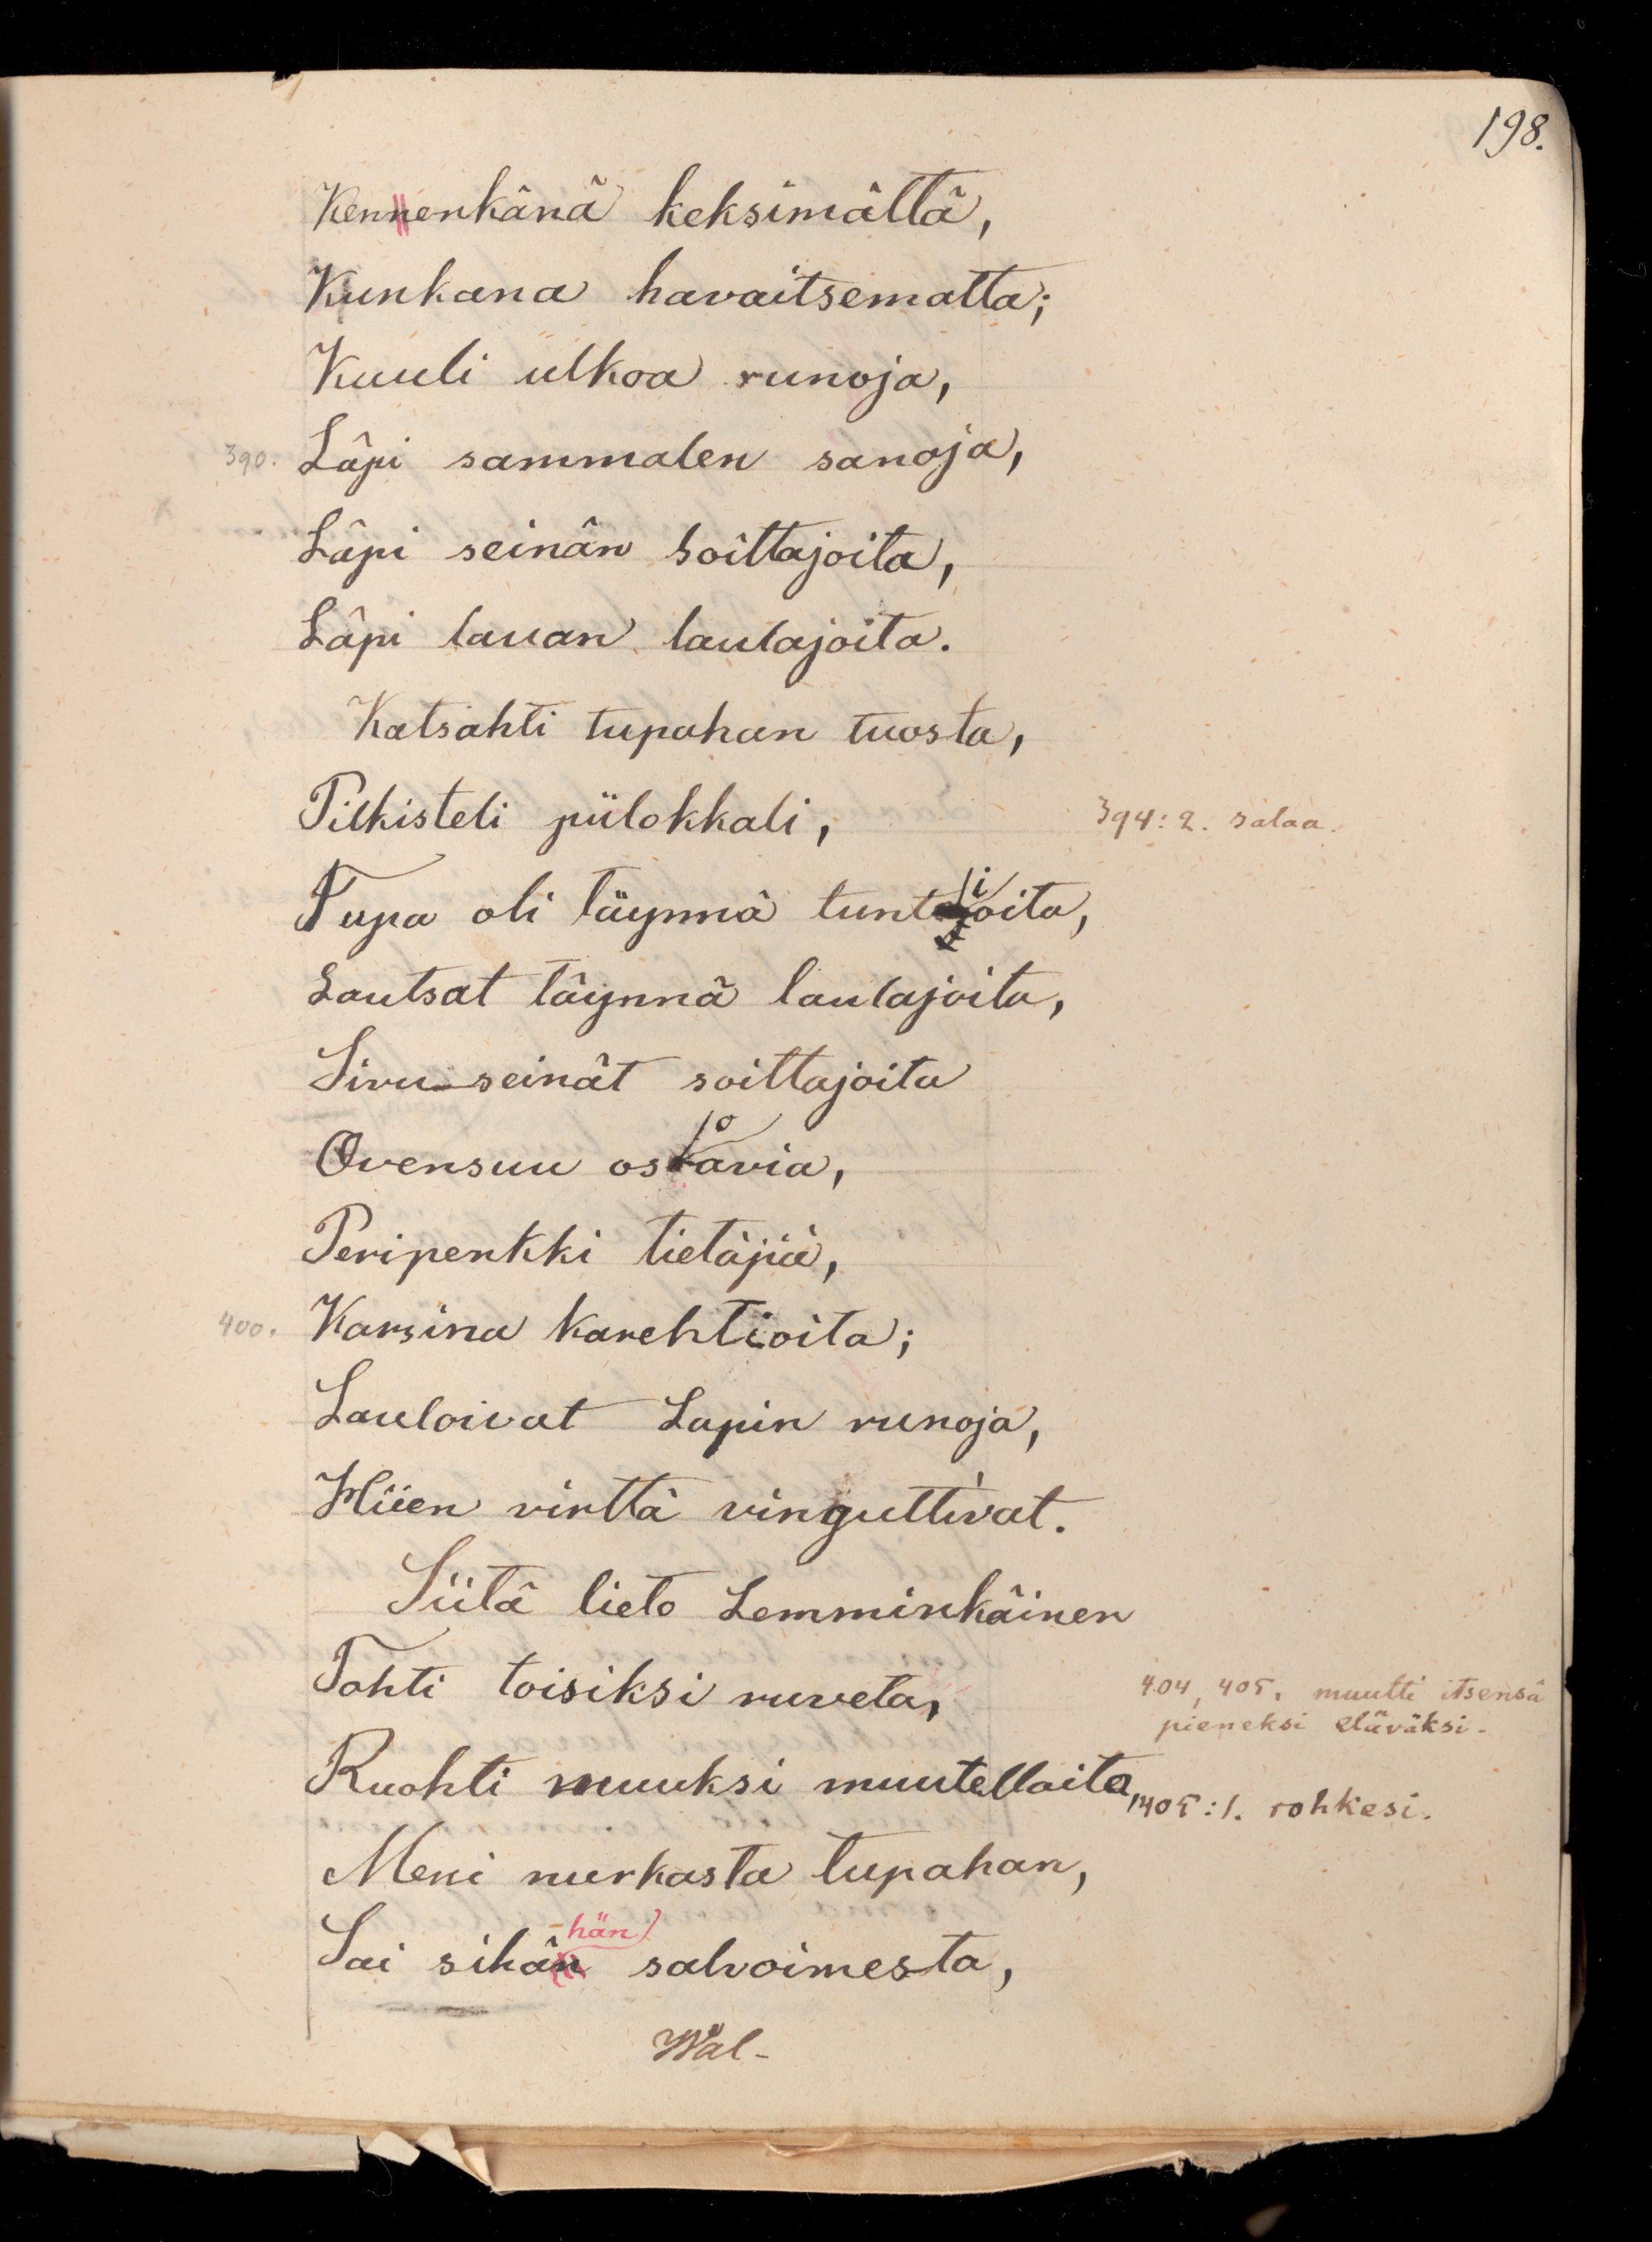 198.
Kennenkänä keksimättä,
Kunkana havaitsematta;
Kuuli ulkoa runoja,
390. Läpi sammalen sanoja,
Läpi seinän soittajoita,
Läpi lauan laulajoita.
Katsahti tupahan tuosta,
Pilkisteli piilokkali, 394: 2. salaa.
Tupa oli täynnä tuntioita,
Lautsat täynnä laulajoita,
Sivu-seinät soittajoita
Ovensuu osoavia,
Peripenkki tietäjiä,
400. Karsina karehtioita;
Lauloivat Lapin runoja,
Hiien virttä vinguttivat.
Siitä lieto Lemminkäinen
Tohti toisiksi ruveta, 404, 405. muutti itsensä
pieneksi eläväksi.
Ruohti muuksi muutellaita, 405:1. rohkesi.
Meni nurkasta tupahan,
hän
Sai sihän salvoimesta,
Wal-